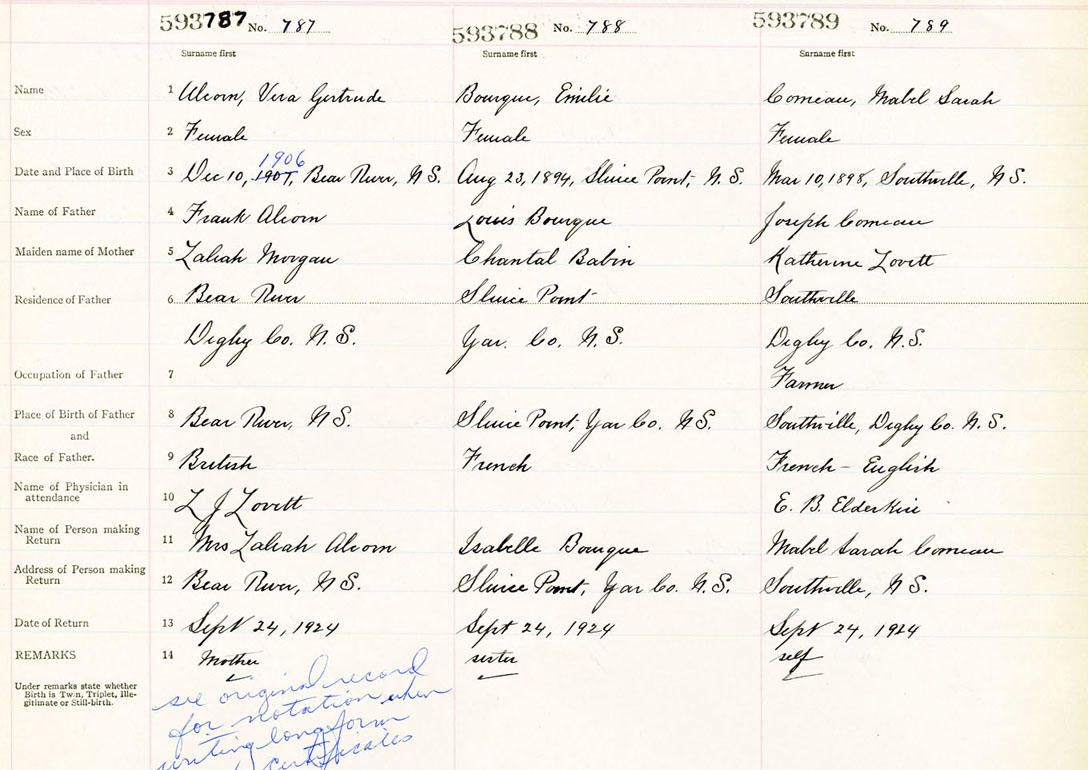 593787 No. 787 593788 No. 788 593789 No. 789
Surname first Surname first Surname first
Name 1 Alcorn, Vera Gertrude Bourque, Emilie Comeau, Mabel Sarah
Sex 2 Female Female Female
1906
Date and Place of Birth 3 Dec 10, 1907, Bear River, N S. Aug 23, 1894, Sluice Point, N. S. Mar 10, 1898, Southville, N S.
Name of Father 4 Frank Alcorn Louis Bourque Joseph Comeau
Maiden name of Mother 5 Zaliah Morgan Chantal Babin Katherine Lovett
Residence of Father 6 Bear River Sluice Point Southville
Digby Co. N. S. Yar. Co. N. S. Digby Co. N. S.
Occupation of Father 7 Farmer
Place of Birth of Father 8 Bear River, N S. Sluice Point, Yar Co. N S. Southville, Digby Co. N. S.
and
Race of Father. 9 British French French - English
Name of Physician in
attendance 10 L J Lovett E. B. Elderkin
Name of Person making
Return 11 Mrs Zaliah Alcorn Isabelle Bourque Mabel Sarah Comeau
Address of Person making
Return 12 Bear River, N S. Sluice Point, Yar Co. N. S. Southville, N S.
Date of Return 13 Sept 24, 1924 Sept 24, 1924 Sept 24, 1924
REMARKS 14 Mother sister self
Under remarks state whether
Birth is Twin, Triplet, Ille-
gitimate or Still-birth.
see original record
for notation when
writing long form
certificates